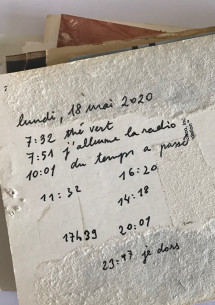 lundi, 18 mai 2020
7:32 thé vert
7:51 j'allume la radio
10:01 du temps a passé
16:20
11:32
14:18
17h39 20:01
23:47 je dors